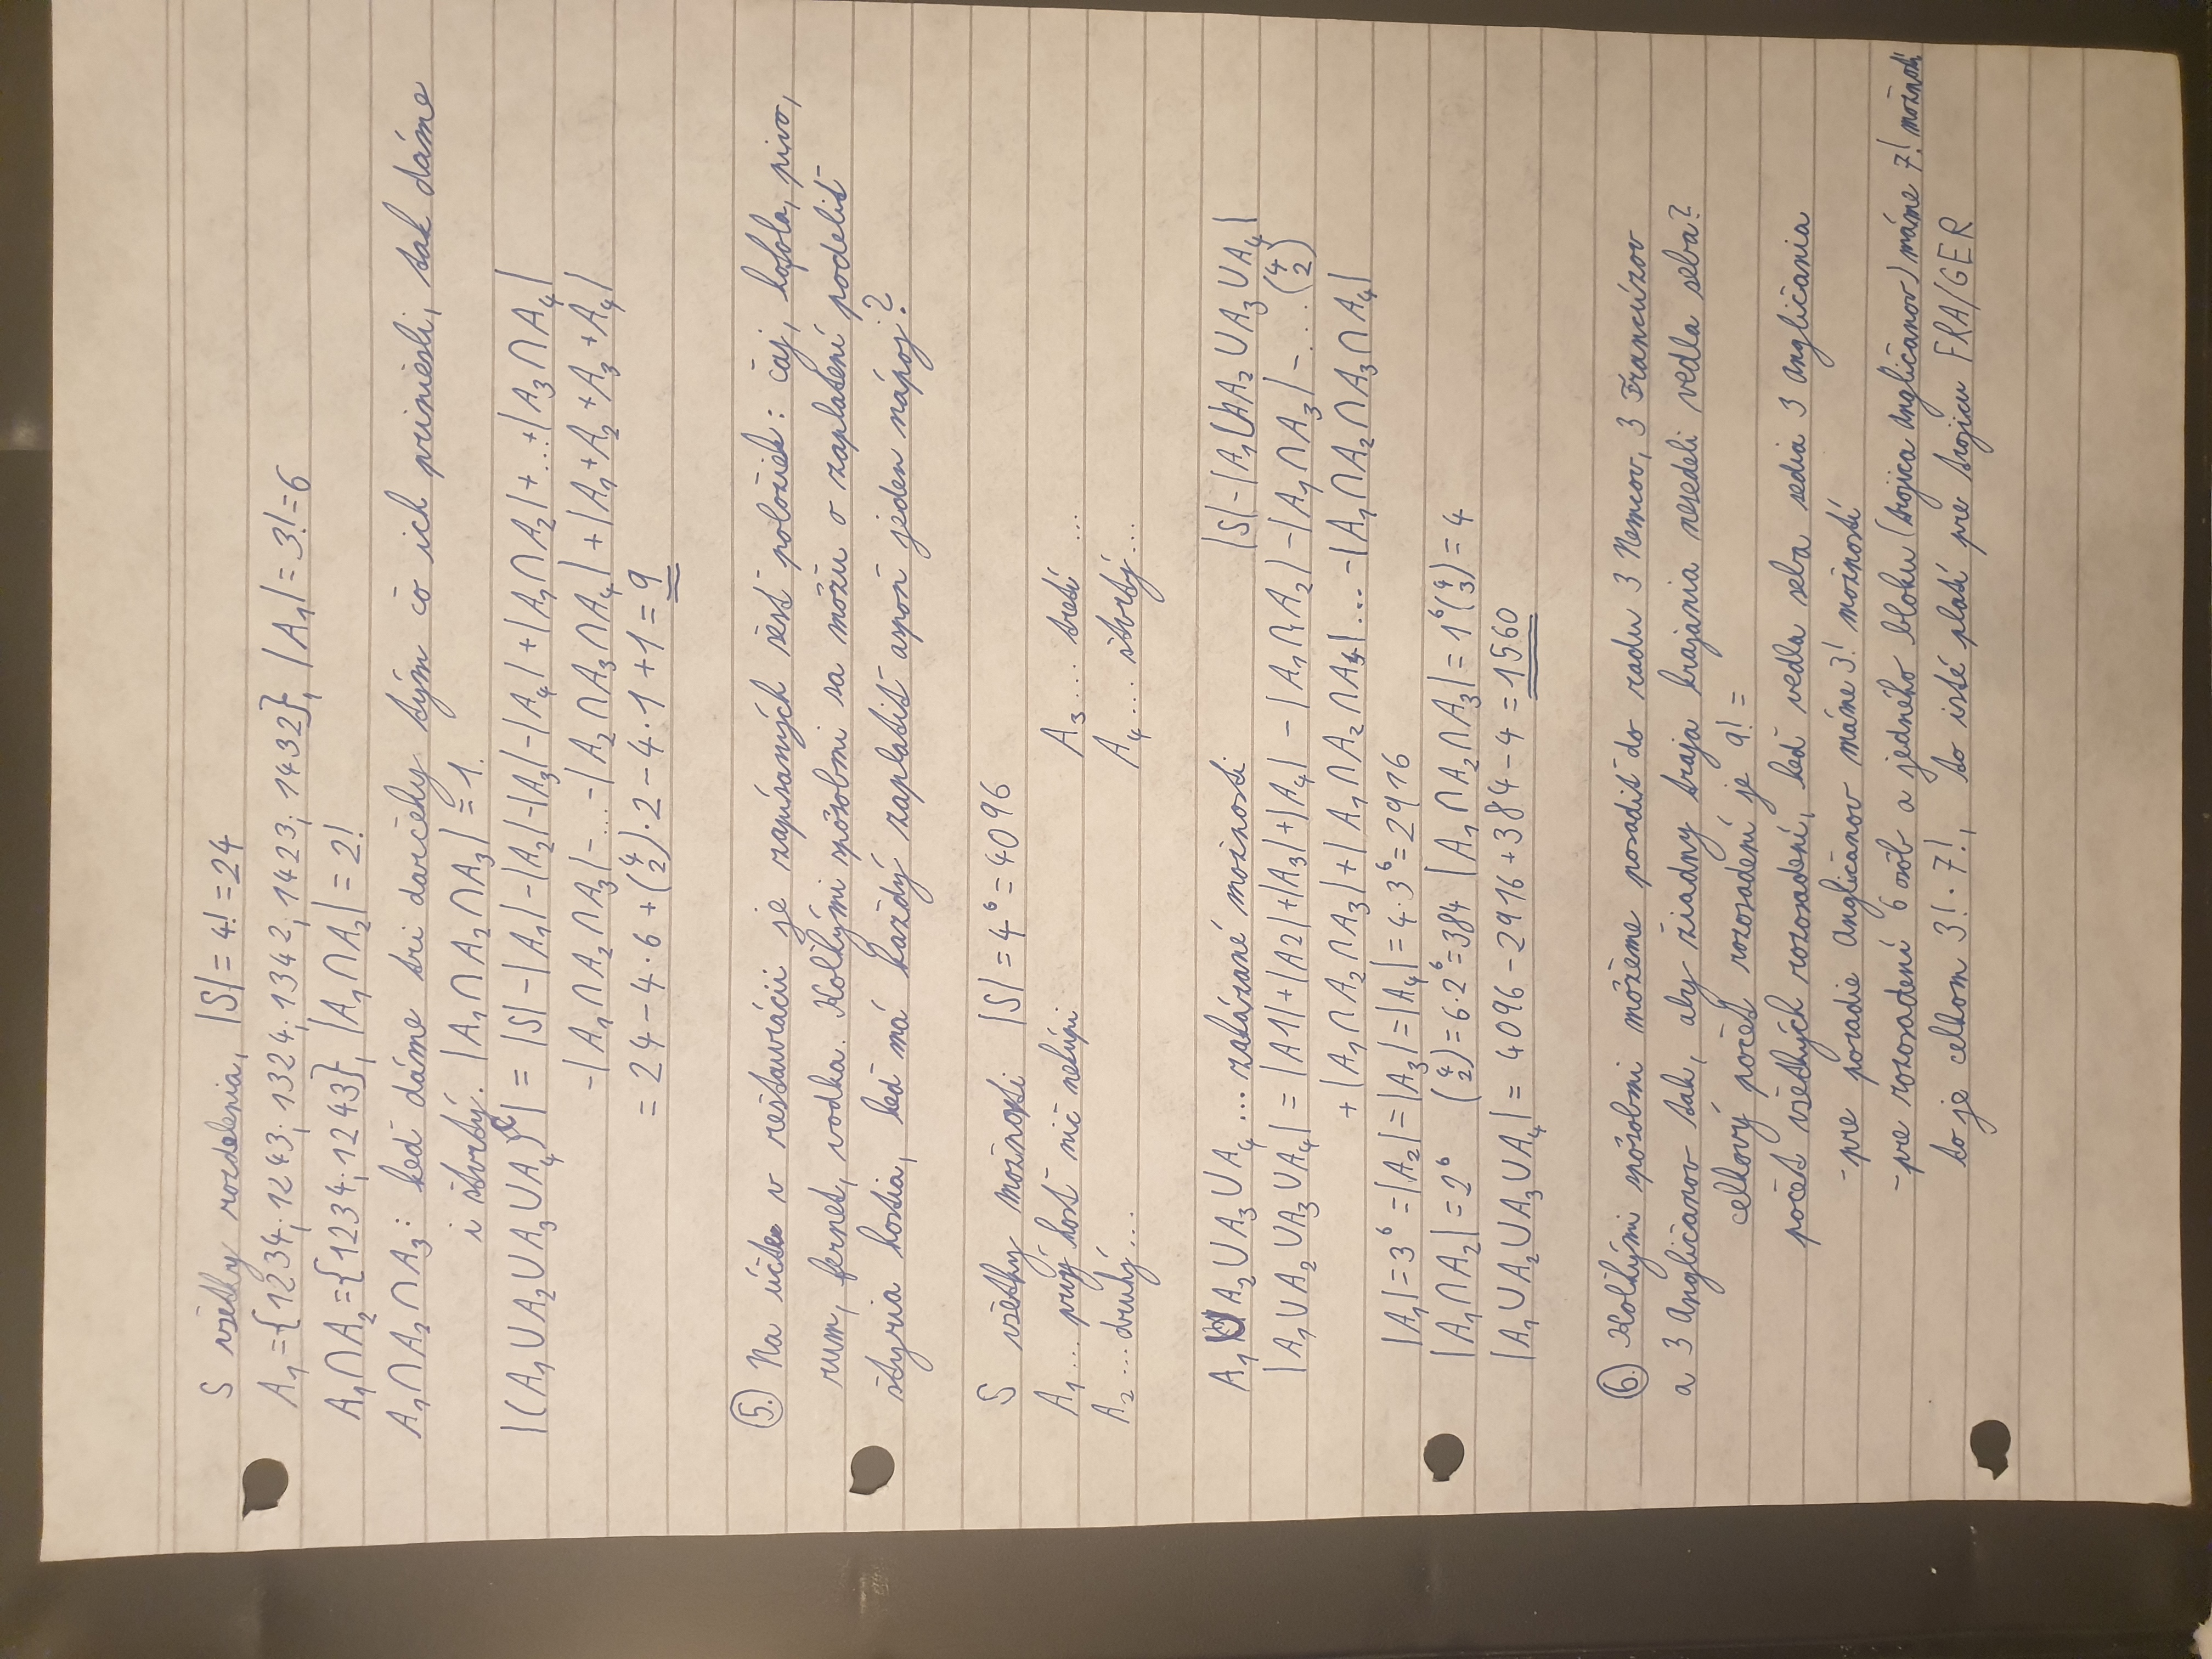 S všetky rozdelenia, |S| = 4! = 24
A₁ = {1234; 1243; 1324; 1342; 1423; 1432}, |A₁| = 3! = 6
A₁∩A₂ = {1234; 1243}, |A₁∩A₂| = 2!
A₁∩A₂∩A₃: keď dáme tri darčeky tým čo ich priniesli, tak dáme
i štvrtý. |A₁∩A₂∩A₃| = 1.
|(A₁∪A₂∪A₃∪A₄)ᶜ| = |S| - |A₁| - |A₂| - |A₃| - |A₄| + |A₁∩A₂| + ... + |A₃∩A₄|
- |A₁∩A₂∩A₃| - ... - |A₂∩A₃∩A₄| + |A₁+A₂+A₃+A₄|
= 24 - 4·6 + (4 2)·2 - 4·1 + 1 = 9
5. Na účte v reštaurácii je zapísaných šesť položiek: čaj, kofola, pivo,
rum, fernet, vodka. Koľkými spôsobmi sa môžu o zaplatení podeliť
štyria hostia, keď má každý zaplatiť aspoň jeden nápoj?
S všetky možnosti |S| = 4⁶ = 4096
A₁ ... prvý hosť nič nekúpi A₃ ... tretí ...
A₂ ... druhý ... A₄ ... štvrtý ...
A₁∪A₂∪A₃∪A₄ ... zakázané možnosti |S| - |A₁∪A₂∪A₃∪A₄|
|A₁∪A₂∪A₃∪A₄| = |A1| + |A2| + |A₃| + |A₄| - |A₁∩A₂| - |A₁∩A₃| - ... (4 2)
+ |A₁∩A₂∩A₃| + |A₁∩A₂∩A₄| ... - |A₁∩A₂∩A₃∩A₄|
|A₁| = 3⁶ = |A₂| = |A₃| = |A₄| = 4·3⁶ = 2916
|A₁∩A₂| = 2⁶ (4 2) = 6·2⁶ = 384 |A₁∩A₂∩A₃| = 1⁶ (4 3) = 4
|A₁∪A₂∪A₃∪A₄| = 4096 - 2916 + 384 - 4 = 1560
6. Koľkými spôsobmi môžeme posadiť do radu 3 Nemcov, 3 Francúzov
a 3 Angličanov tak, aby žiadny traja krajania nesedeli vedla seba?
celkový počet rozosadení je 9! =
počet všetkých rozosadení, keď vedla seba sedia 3 Angličania
- pre poradie Angličanov máme 3! možností
- pre rozosadení 6 osôb a jedného bloku (trojica Angličanov) máme 7! možností
to je celkom 3!·7!, to isté platí pre trojicu FRA/GER